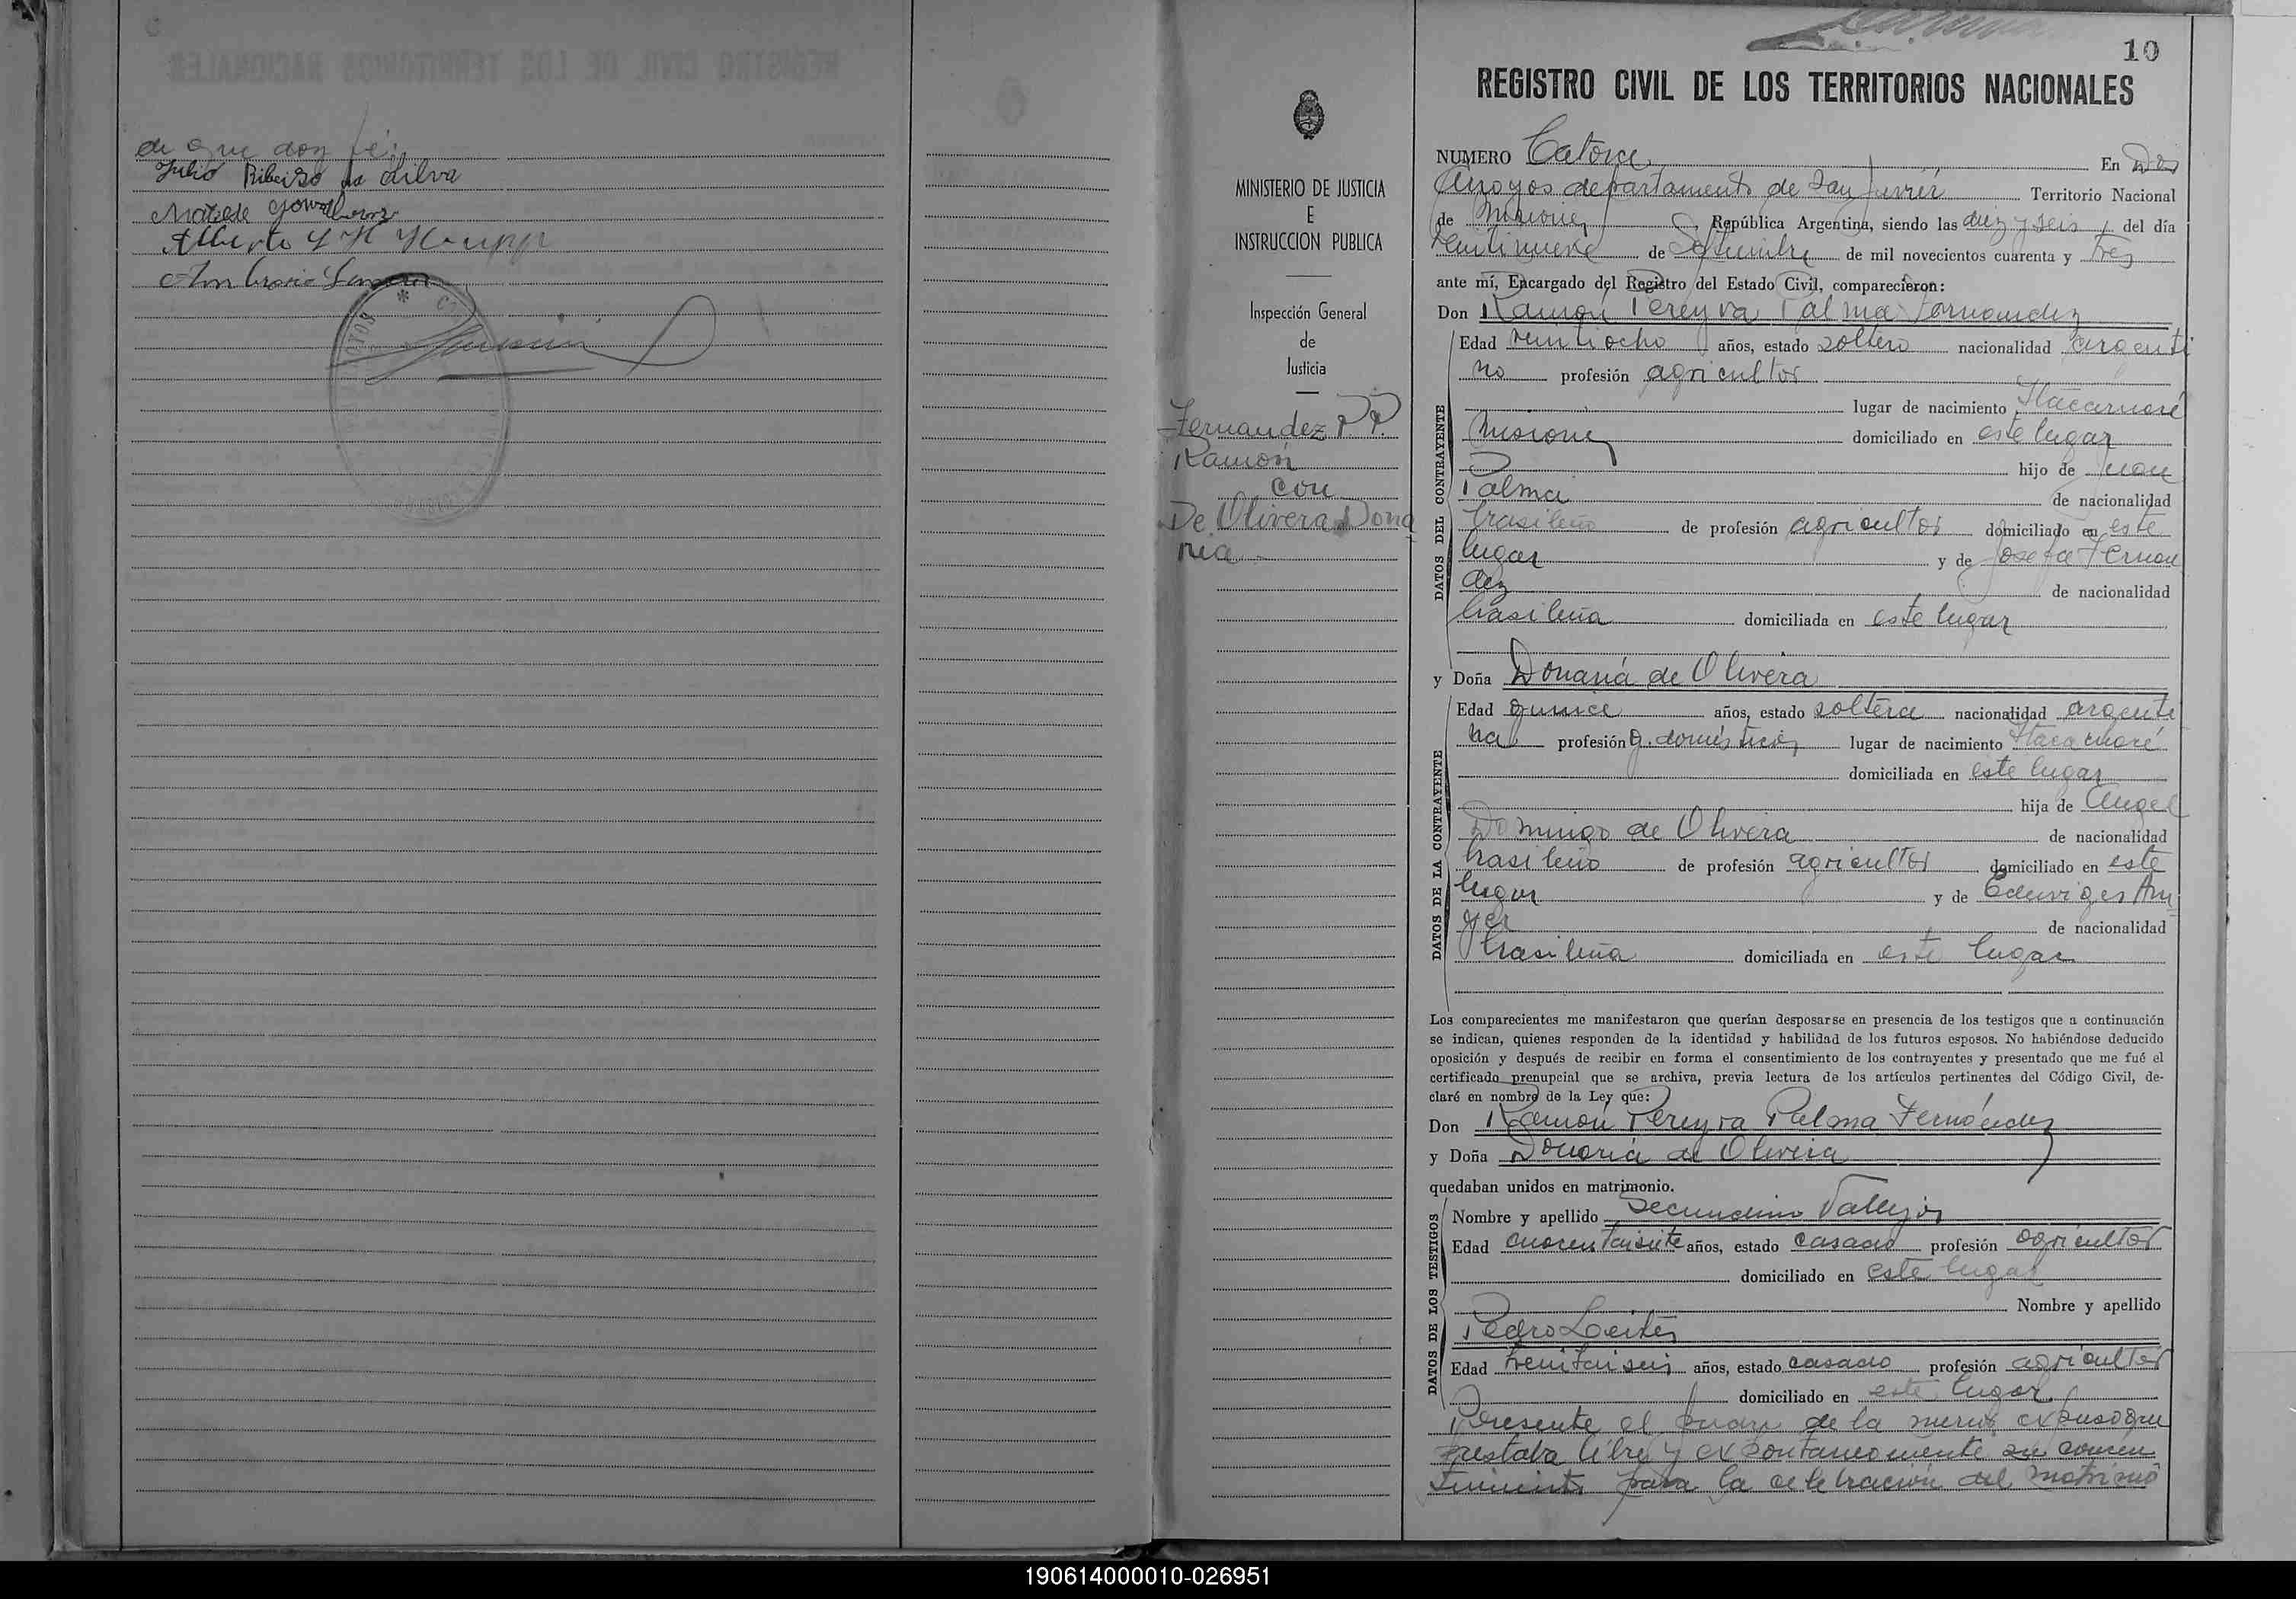 de que doy fé.
Julio Ribeiro da Silva
Alberto
10
REGISTRO CIVIL DE LOS TERRITORIOS NACIONALES
MINISTERIO DE JUSTICIA
E
INSTRUCCION PUBLICA
Inspección General
de
Justicia
Fernandez P P.
Ramón
con
De Olivera Dona
ria
NUMERO Catorce En Dos
Arroyos departamento de San Javier Territorio Nacional
de Misiones República Argentina, siendo las diez y seis del día
veintinueve de Setiembre de mil novecientos cuarenta y tres
ante mí, Encargado del Registro del Estado Civil, comparecieron:
Don Ramón Pereyra Palma Fernandez
DATOS DEL CONTRAYENTE
Edad veintiocho años, estado soltero nacionalidad argenti
no profesión agricultor
lugar de nacimiento Itacaruaré
Misiones domiciliado en este lugar
hijo de Juan
Palma de nacionalidad
brasileño de profesión agricultor domiciliado en este
lugar y de Josefa Fernan
dez de nacionalidad
brasileña domiciliada en este lugar
y Doña Donaria de Olivera
DATOS DE LA CONTRAYENTE
Edad quince años, estado soltera nacionalidad argenti
na profesión q. domésticos lugar de nacimiento Itacaruaré
domiciliada en este lugar
hija de Angel
Domingo de Olivera de nacionalidad
brasileño de profesión agricultor domiciliado en este
lugar y de Eduviges
de nacionalidad
brasileña domiciliada en este lugar
Los comparecientes me manifestaron que querían desposarse en presencia de los testigos que a continuación
se indican, quienes responden de la identidad y habilidad de los futuros esposos. No habiéndose deducido
oposición y después de recibir en forma el consentimiento de los contrayentes y presentado que me fué el
certificado prenupcial que se archiva, previa lectura de los artículos pertinentes del Código Civil, de-
claré en nombre de la Ley que:
Don Ramón Pereyra Palma Fernández
y Doña Donaria de Olivera
quedaban unidos en matrimonio.
DATOS DE LOS TESTIGOS
Nombre y apellido Secundino Vallejos
Edad cuarentaisiete años, estado casado profesión agricultor
domiciliado en este lugar
Nombre y apellido
Pedro Leites
Edad treintaiseis años, estado casado profesión agricultor
domiciliado en este lugar.
Presente el padre de la menor expuso que
prestaba libre y expontaneamente su consen
timiento para la celebración del matrimo
190614000010-026951